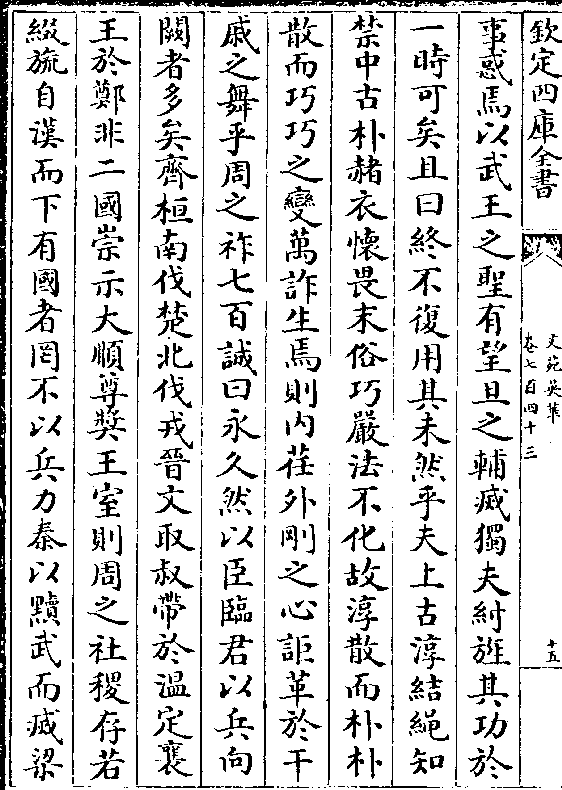 欽定四庫全書
文苑英華
卷七百四十三
十五
事惑焉以武王之聖有望旦之輔滅獨夫紂旌其功於
一時可矣且曰終不復用其未然乎夫上古淳結繩知
禁中古朴赭衣懷畏末俗巧嚴法不化故淳散而朴朴
散而巧巧之變萬詐生焉則内荏外剛之心詎革於干
戚之舞乎周之祚七百誠曰永久然以臣臨君以兵向
闕者多矣齊桓南伐楚北伐戎晉文取叔帶於溫定襄
王於鄭非二國崇示大順尊奬王室則周之社稷存若
綴旒自漢而下有國者罔不以兵力秦以黷武而滅梁